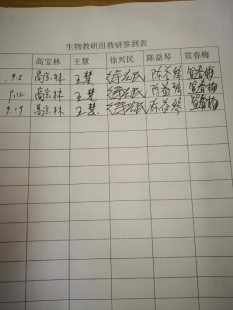 生物教研组教研签到表
高宝林 王慧 徐兴民 陈益琴 贺春梅
9.5 高宝林 王慧 徐兴民 陈益琴 贺春梅
9.12 高宝林 王慧 徐兴民 陈益琴 贺春梅
9.19 高宝林 王慧 徐兴民 陈益琴 贺春梅